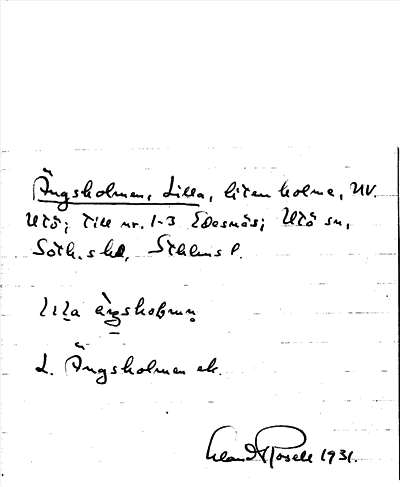 Ängsholmen, Lilla, liten holme, NV.
Utö; Till nr. 1-3 Edesnäs; Utö sn,
Soth. shd, Sthlms l.
lilla ängsholmen
L. Ängsholmen ek.
RoselL 1931.